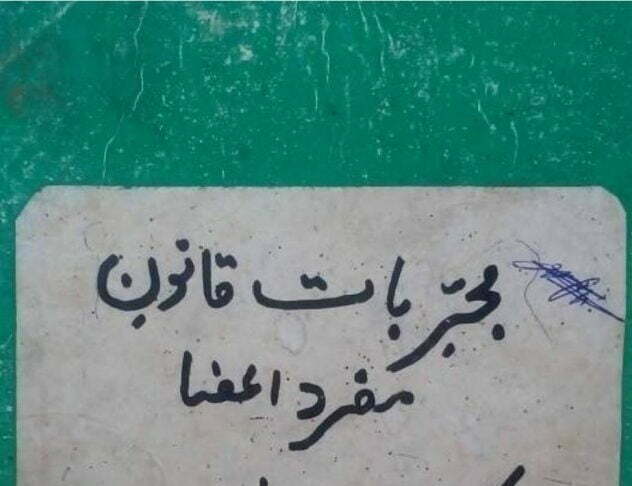 مجرّبات قانون
مفرد اعضا